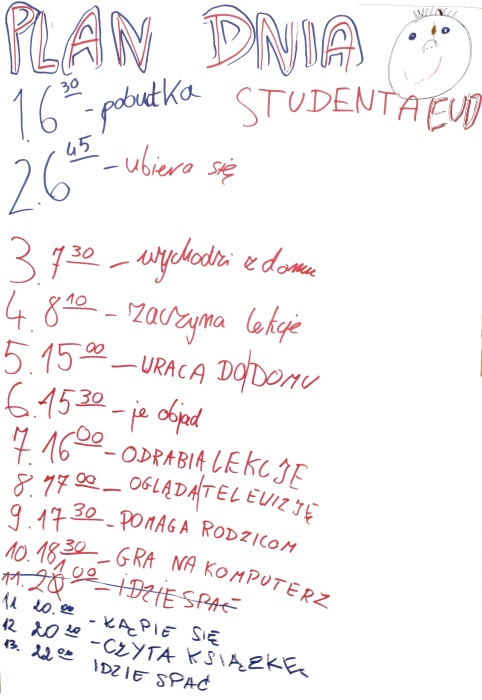 PLAN DNIA
STUDENTA EUD
1. 6 30 - pobudka
2. 6 45 - ubiera się
3. 7 30 - wychodzi z domu
4. 8 10 - zaczyna lekcje
5. 15 00 - WRACA DO/DOMU
6. 15 30 - je objad
7. 16 00 - ODRABIA LEKCJĘ
8. 17 00 - OGLĄDA/TELEWIZJĘ
9. 17 30 - POMAGA RODZICOM
10. 18 30 - GRA NA KOMPUTERZ
11. 21 00 - IDZIE SPAĆ
11 20.00 - KĄPIE SIĘ
12 20 20 - CZYTA KSIĄŻKĘ
13. 22 00 IDZIE SPAĆ